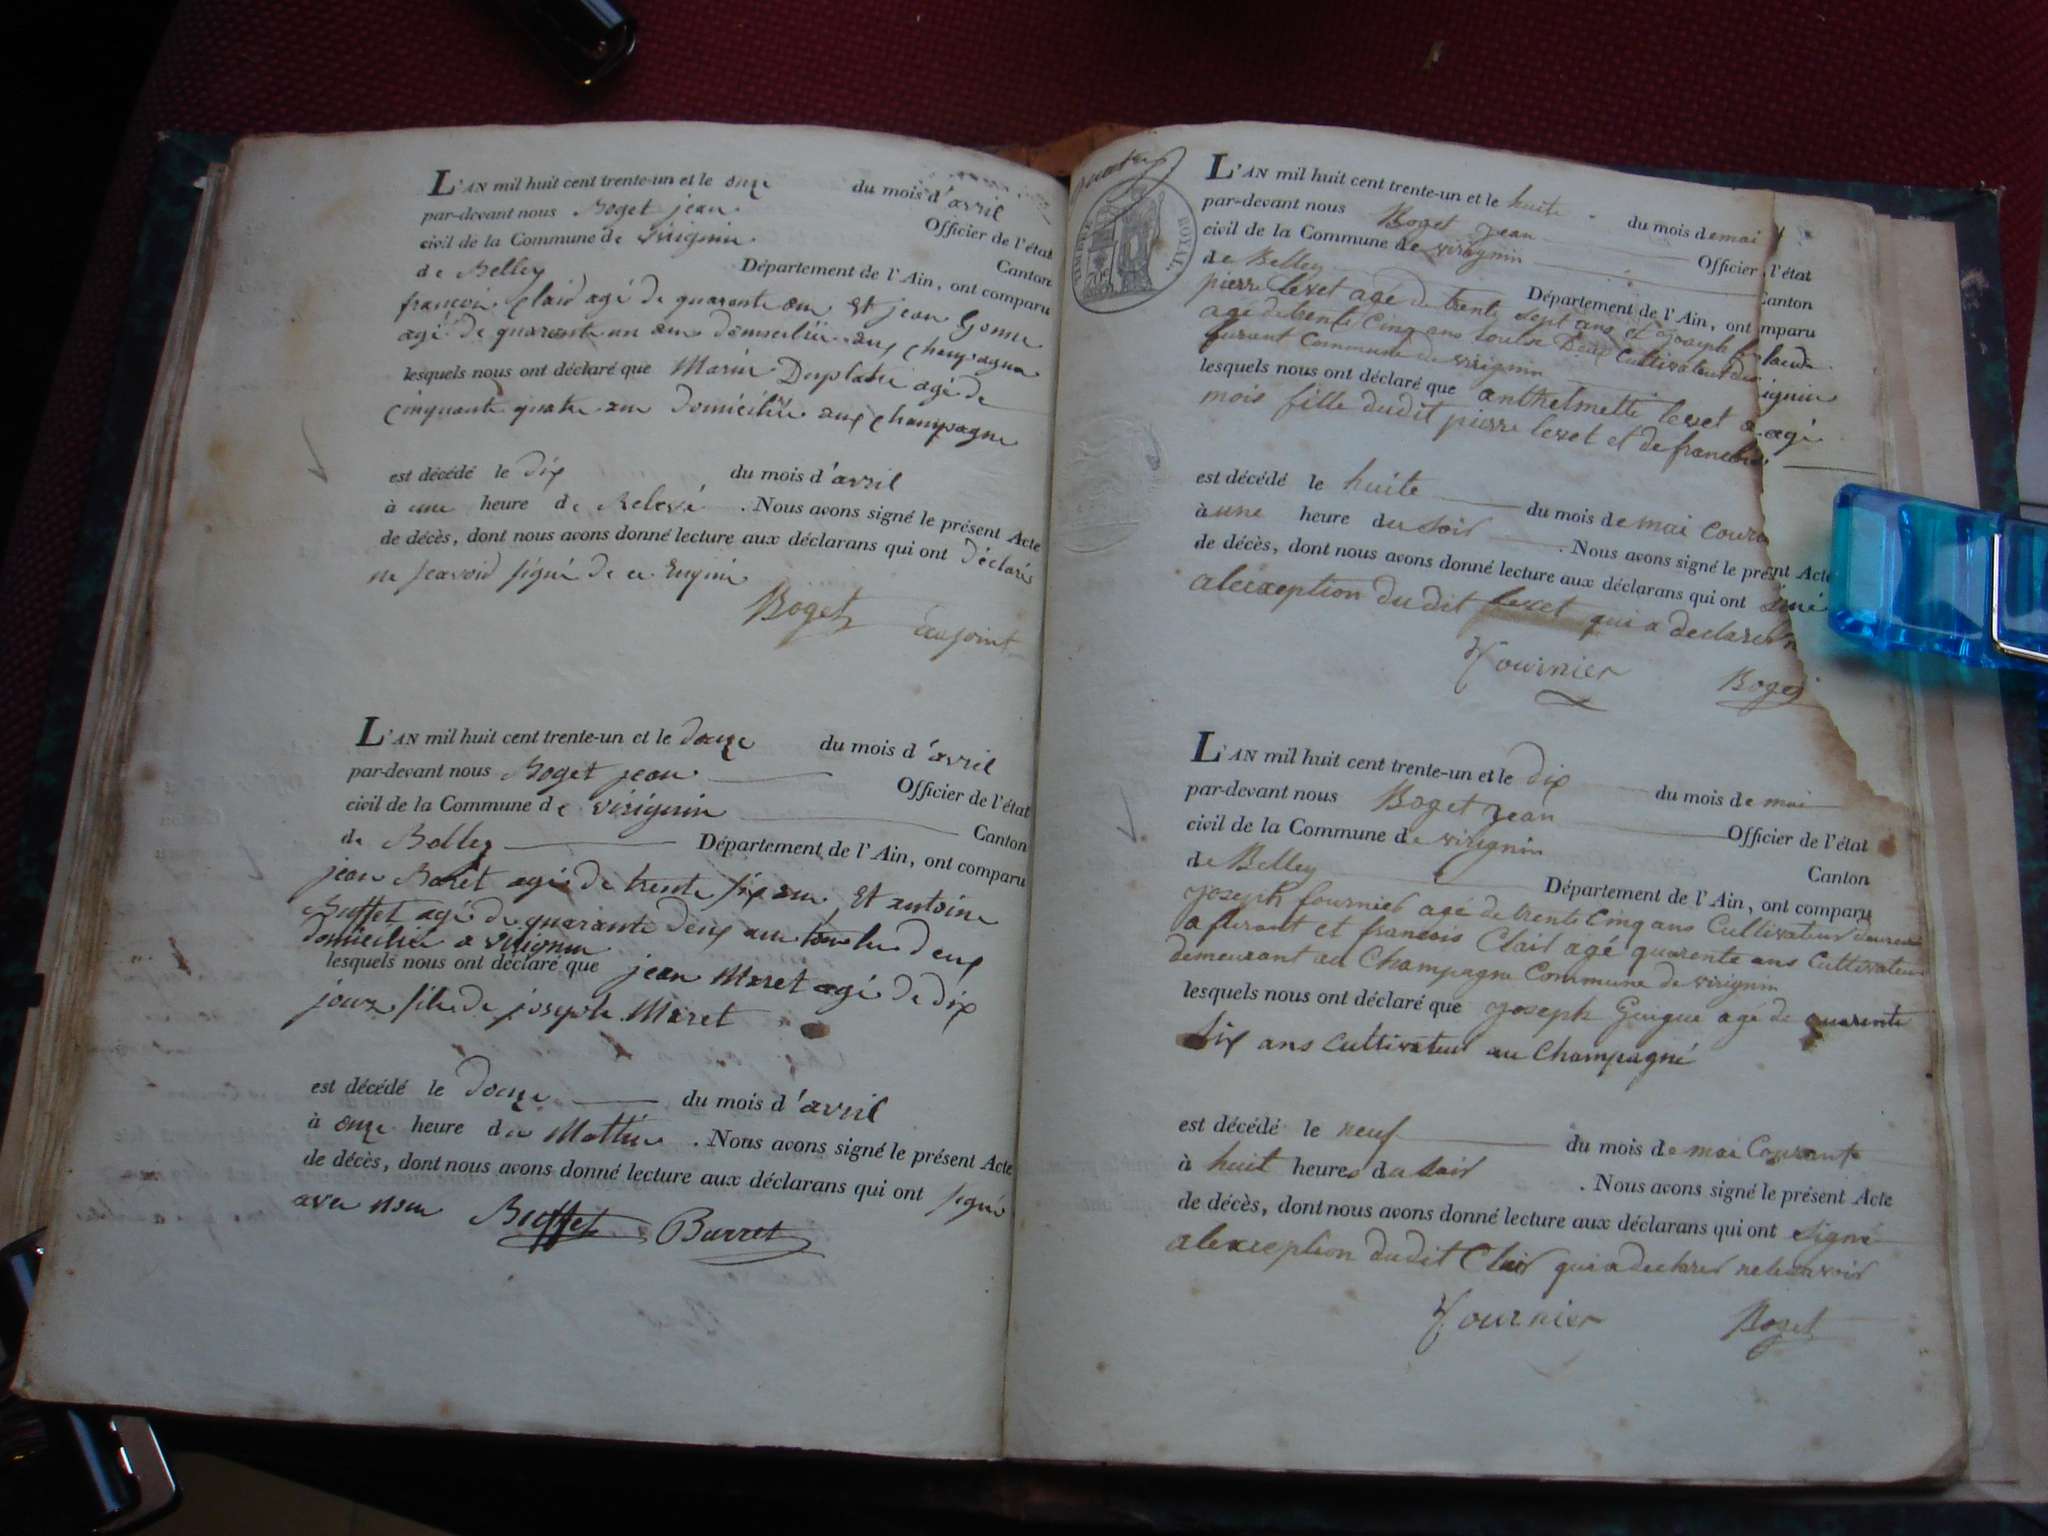 L'AN mil huit cent trente-un et le onze du mois d'avril
par-devant nous Boget jean Officier de l'état
civil de la Commune de virignin Canton
de Belley Département de l'Ain, ont comparu
françois Clair agé de quarente ans Et jean
agé de quarente un ans domicilié aux champagne
lesquels nous ont déclaré que Marie agé de
cinquante quatre ans domicilié aux champagne
est décédé le dix du mois d'avril
à une heure de Relevé . Nous avons signé le présent Acte
de décès, dont nous avons donné lecture aux déclarans qui ont déclaré
ne scavoir signé de ce Enquis
Boget adjoint
L'AN mil huit cent trente-un et le douze du mois d'avril
par-devant nous Boget jean Officier de l'état
civil de la Commune de virignin Canton
de Belley Département de l'Ain, ont comparu
jean agé de trente six ans Et antoine
Buffet agé de quarante deux ans tous les deux
domicilié a virignin
lesquels nous ont déclaré que jean Moret agé de dix
jours fils de joseph Moret
est décédé le douze du mois d'avril
à onze heure du Mattin . Nous avons signé le présent Acte
de décès, dont nous avons donné lecture aux déclarans qui ont signé
avec nous Buffet Burret
TIMBRE ROYAL
L'AN mil huit cent trente-un et le huite du mois de mai
par-devant nous Boget Jean Officier l'état
civil de la Commune de virignin Canton
de Belley Département de l'Ain, ont mparu
pierre levet agé de trente sept ans et joseph
agé de trente Cinq ans tous les Deux Cultivateur
furant Commune de virignin
lesquels nous ont déclaré que anthelmette levet agé
mois fille dudit pierre levet et de
est décédé le huite du mois de mai
à une heure du soir . Nous avons signé le présent Acte
de décès, dont nous avons donné lecture aux déclarans qui ont
alexception du dit levet qui a declarer
Fournier Boget
L'AN mil huit cent trente-un et le dix du mois de mai
par-devant nous Boget Jean Officier de l'état
civil de la Commune de virignin Canton
de Belley Département de l'Ain, ont comparu
joseph fournier agé de trente Cinq ans Cultivateur
a furant et francois Clair agé quarente ans Cultivateur
demeurant au Champagne Commune de virignin
lesquels nous ont déclaré que joseph Guigue agé de quarente
Six ans Cultivateur au Champagne
est décédé le neuf du mois de mai Courant
à huit heures du soir . Nous avons signé le présent Acte
de décès, dont nous avons donné lecture aux déclarans qui ont signé
alexception dudit Clair qui a declarer ne le savoir
Fournier Boget